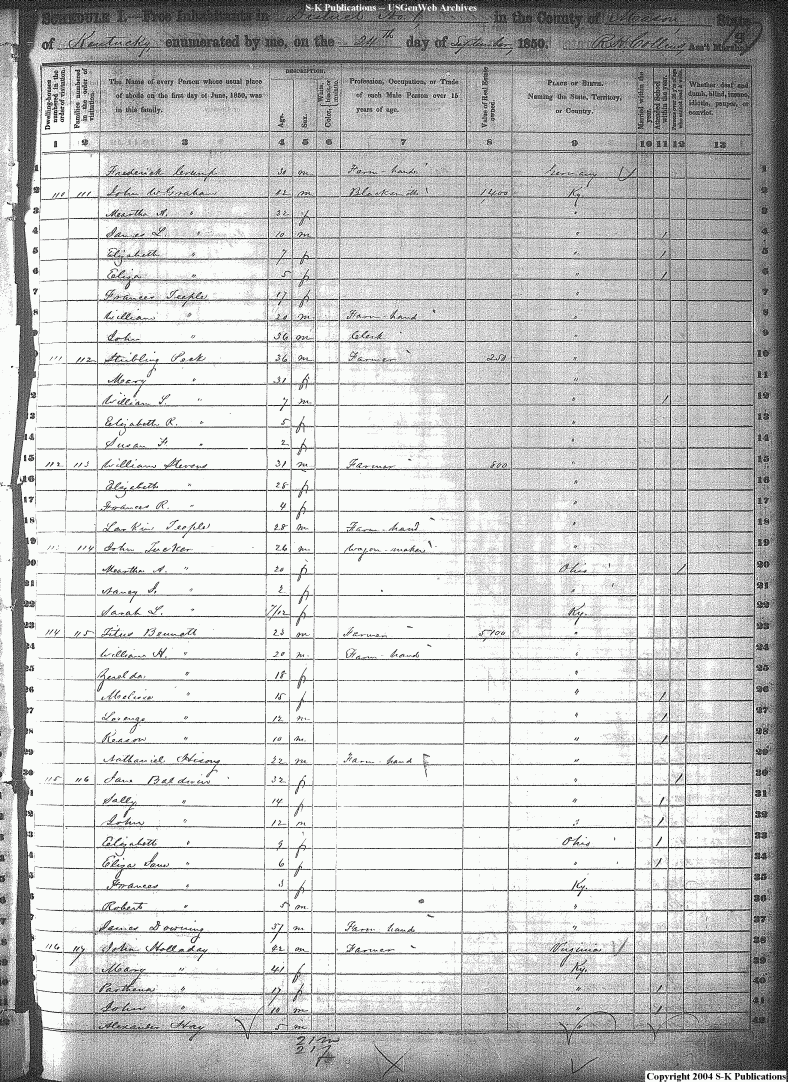 S-K Publications -- USGenWeb Archives
SCHEDULE I.—Free Inhabitants in District in the County of Mason State
of Kentucky enumerated by me, on the 24th day of September, 1850. R. H. Collins Ass't Marshal.
Dwelling-houses numbered in the order of visitation. Families numbered in the order of visitation. The Name of every Person whose usual place of abode on the first day of June, 1850, was in this family. DESCRIPTION. Age. Sex. Color, Profession, Occupation, or Trade of each Male Person over 15 years of age. Value of Real Estate owned. PLACE OF BIRTH. Naming the State, Territory, or Country. Married within the year. Whether deaf and dumb, blind, insane, idiotic, pauper, or convict.
1 2 3 4 5 6 7 8 9 10 11 12 13
1 Frederick 30 m Farm-hand Germany 1
2 110 111 John W. Graham m Blacksmith 1400 Ky. 2
3 Meartha A. " 32 f " 3
4 James L. " 10 m " 1 4
5 Elizabeth " 7 f " 1 5
6 Eliza " 5 f " 1 6
7 Frances Teeple 17 f " 7
8 William " 20 m Farm-hand " 8
9 John " 36 m Clerk " 9
10 111 112 Stribling Peck 36 m Farmer 250 " 10
11 Meary " 31 f " 11
12 William S. " 7 m " 1 12
13 Elizabeth R. " 5 f " 13
14 Susan F. " 2 f " 14
15 112 113 William Stevens 31 m Farmer 800 " 15
16 Elizebeth " 28 f " 16
17 Frances R. " 4 f " 17
18 Larkin Teeple 28 m Farm-hand " 18
19 113 114 John Tucker 26 m Wagon-maker " 19
20 Meartha A. " 20 f Ohio 1 20
21 Nancy " 2 f " 21
22 Sarah L. " 7/12 f Ky. 22
23 114 115 Titus Bennett 23 m Farmer 5,100 " 23
24 William H. " 20 m Farm-hand " 24
25 Zerelda " 18 f " 25
26 Melissa " 15 f " 1 26
27 Lorenzo " 12 m " 1 27
28 Reason " 10 m " 1 28
29 Nathaniel Hisong 22 m Farm-hand " 29
30 115 116 Jane Baldwin 32 f " 1 30
31 Sally " 14 f " 1 31
32 John " 12 m 1 32
33 Elizabeth " 9 f Ohio 1 33
34 Eliza Jane " 6 f " 1 34
35 Frances " 3 f Ky. 35
36 Robert " 5 m " 36
37 James Downing 57 m Farm hand " 37
38 116 117 John Holladay 42 m Farmer Virginia 38
39 Meary " 41 f Ky. 39
40 Parthena " 17 f " 1 40
41 John " 10 m " 1 41
42 Alexander Hay 5 m " 42
21 m
21 f
Copyright 2004 S-K Publications